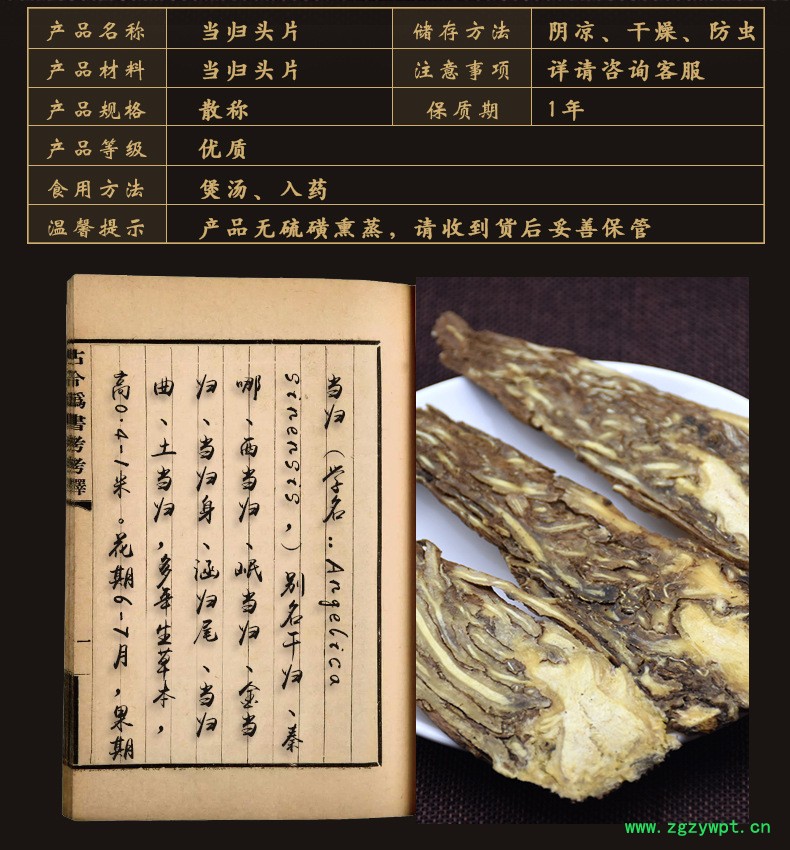 产品名称 当归头片 储存方法 阴凉、干燥、防虫
产品材料 当归头片 注意事项 详请咨询客服
产品规格 散称 保质期 1年
产品等级 优质
食用方法 煲汤、入药
温馨提示 产品无硫磺熏蒸，请收到货后妥善保管
当归（学名：Angelica
sinensis，）别名干归、秦
哪、西当归、岷当归、金当
归、当归身、涵归尾、当归
曲、土当归，多年生草本，
高0.4-1米。花期6-7月，果期
古今伪書考考釋
一
www.zgzywpt.cn